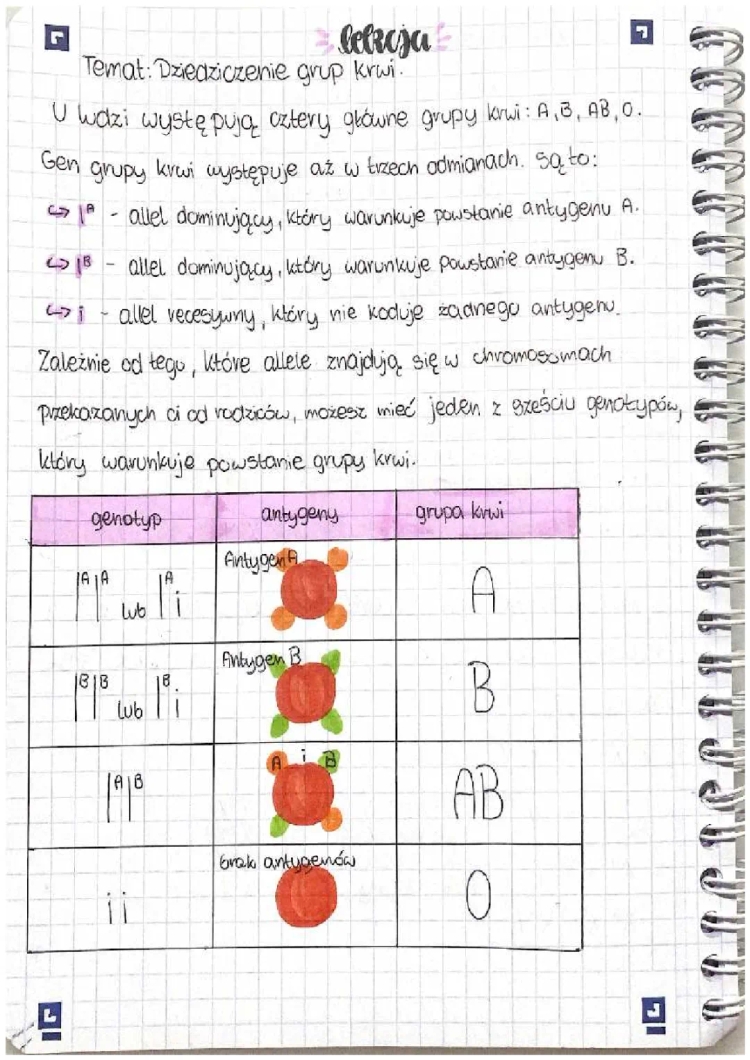 lekcja
Temat: Dziedziczenie grup krwi.
U ludzi występują cztery główne grupy krwi: A, B, AB, O.
Gen grupy krwi występuje aż w trzech odmianach. Są to:
↪ I^A - allel dominujący, który warunkuje powstanie antygenu A.
↪ I^B - allel dominujący, który warunkuje powstanie antygenu B.
↪ i - allel recesywny, który nie koduje żadnego antygenu.
Zależnie od tego, które allele znajdują się w chromosomach
przekazanych ci od rodziców, możesz mieć jeden z sześciu genotypów,
który warunkuje powstanie grupy krwi.
genotyp antygeny grupa krwi
Antygen A
I^A I^A lub I^A i A
Antygen B
I^B I^B lub I^B i B
A i B
I^A I^B AB
brak antygenów
i i O